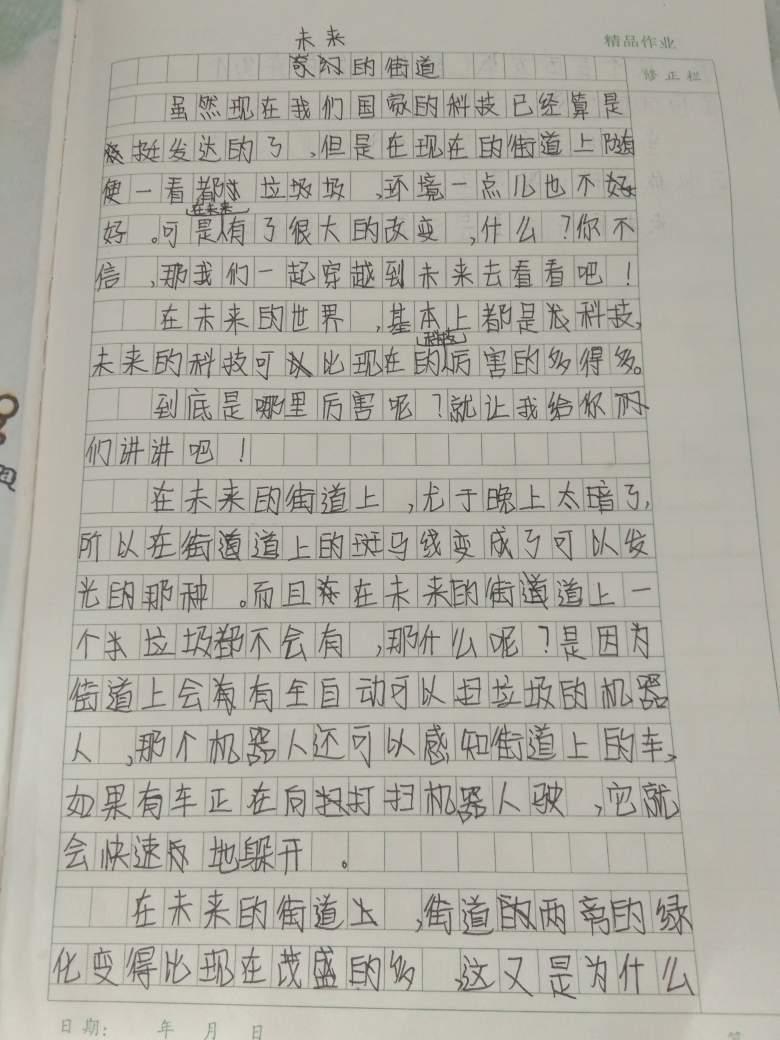 精品作业
修正栏
未来
的街道
虽然现在我们国家的科技已经算是
挺发达的了,但是在现在的街道上随
便一看都 垃圾圾,环境一点儿也不好
在未来
好。可是有了很大的改变,什么?你不
信,那我们一起穿越到未来去看看吧!
在未来的世界,基本上都是 科技,
科技
未来的科技可以比现在的厉害的多得多。
到底是哪里厉害呢?就让我给你
们讲讲吧!
在未来的街道上,尤于晚上太暗了,
所以在街道道上的斑马线变成了可以发
光的那种。而且 在未来的街道道上一
个 垃圾都不会有,那什么呢?是因为
街道上会 有全自动可以扫垃圾的机器
人,那个机器人还可以感知街道上的车,
如果有车正在向 打扫机器人驶,它就
会快速 地躲开。
在未来的街道上,街道的两旁的绿
化变得比现在茂盛的多,这又是为什么
日期: 年 月 日